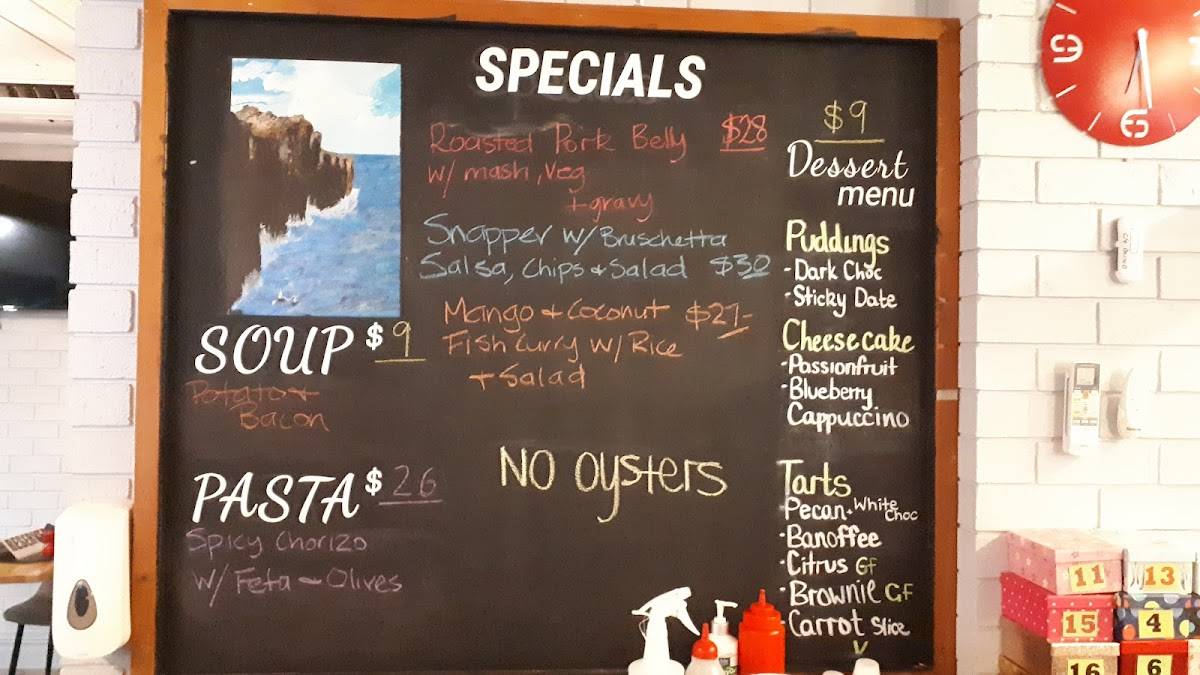 SPECIALS
Roasted Pork Belly $28
w/ mash, Veg
+ gravy
Snapper w/ Bruschetta
Salsa, Chips + Salad $30
Mango + Coconut $27-
Fish Curry w/ Rice
+ Salad
NO oysters
SOUP $9
Potato +
Bacon
PASTA $26
Spicy Chorizo
w/ Feta ~ Olives
$9
Dessert
menu
Puddings
- Dark Choc
- Sticky Date
Cheesecake
- Passionfruit
- Blueberry
Cappuccino
Tarts
Pecan + White Choc
- Banoffee
- Citrus GF
- Brownie GF
Carrot Slice
V
9
6
11
13
15
4
16
6